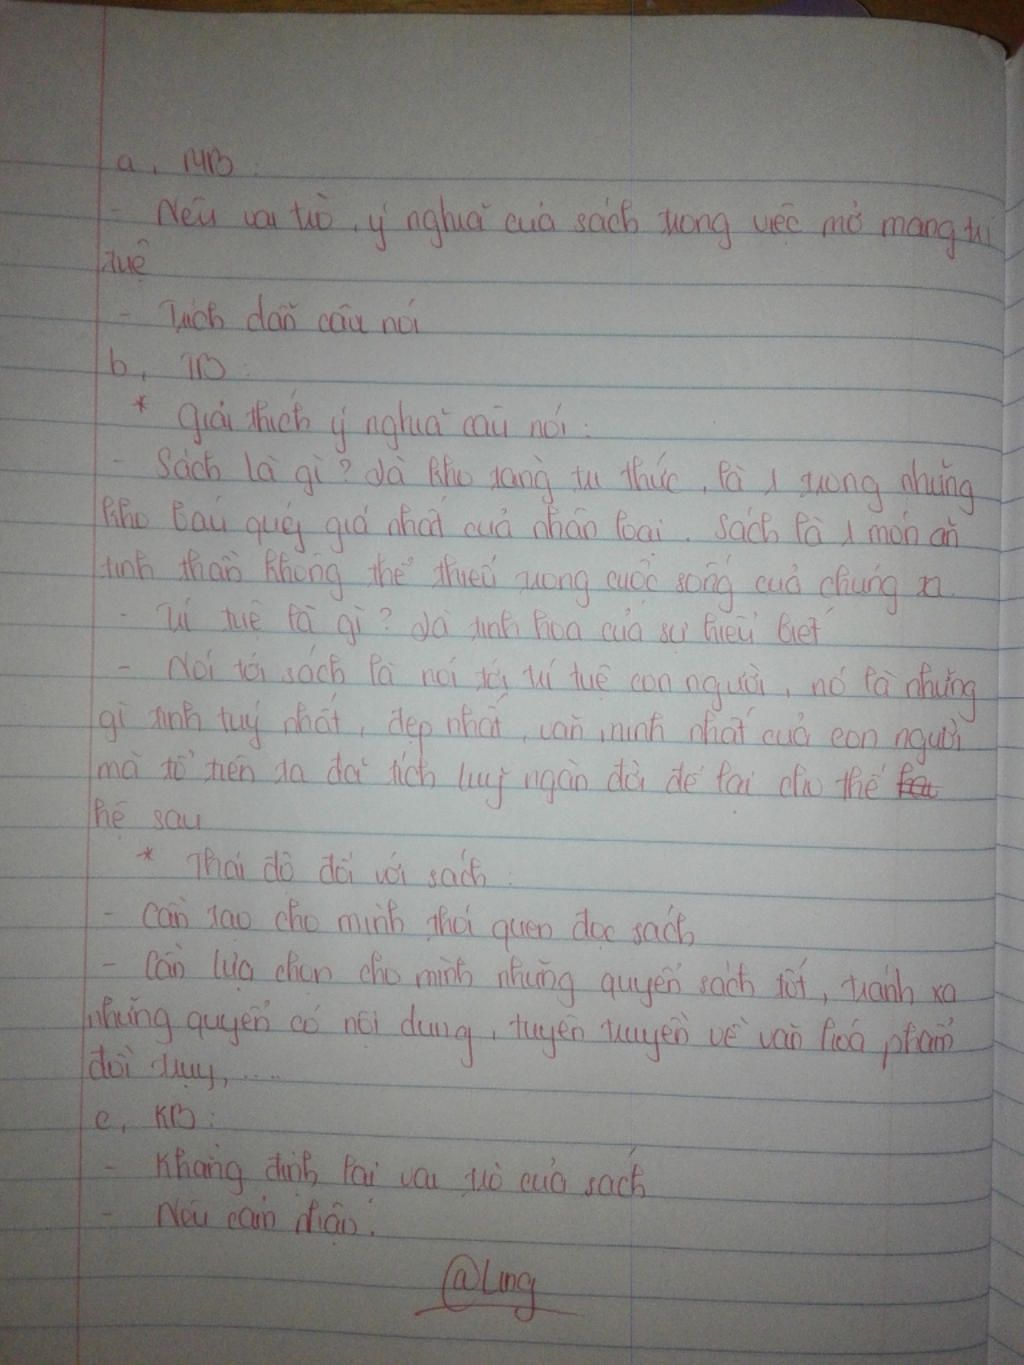 a, MB:
- Nêu vai trò, ý nghĩa của sách trong việc mở mang trí
tuệ
- Trích dẫn câu nói
b, TB:
* Giải thích ý nghĩa câu nói:
- Sách là gì? Là kho tàng tri thức, là 1 trong những
kho báu quý giá nhất của nhân loại. Sách là 1 món ăn
tinh thần không thể thiếu trong cuộc sống của chúng ta.
- Trí tuệ là gì? Là tinh hoa của sự hiểu biết
- Nói tới sách là nói tới trí tuệ con người, nó là những
gì tinh tuý nhất, đẹp nhất, văn minh nhất của con người
mà tổ tiên ta đã tích luỹ ngàn đời để lại cho thế
hệ sau
* Thái độ đối với sách:
- Cần tạo cho mình thói quen đọc sách
- Cần lựa chọn cho mình những quyển sách tốt, tránh xa
những quyển có nội dung, tuyên truyền về văn hoá phẩm
đồi truỵ, ....
c, KB:
- Khẳng định lại vai trò của sách
- Nêu cảm nhận.
@Ling